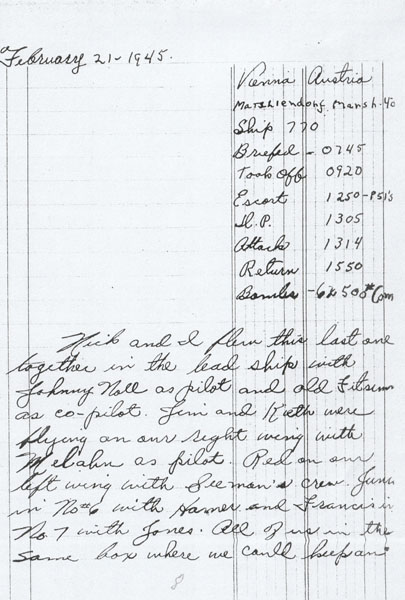 February 21-1945.
Vienna Austria
Marsh-40
Ship 770
Briefed - 0745
Took Off 0920
Escort 1250-P51's
I.P. 1305
Attack 1314
Return 1550
Bombs - 6x500#
Nick and I flew this last one
together in the lead ship with
Johnny Noll as pilot and old
as co-pilot. Jim and Keith were
flying on our right wing with
as pilot. Red on our
left wing with Seeman's crew.
in No#6 with Hamer and Francis in
No. 7 with Jones. All of us in the
same box where we could keep an
8